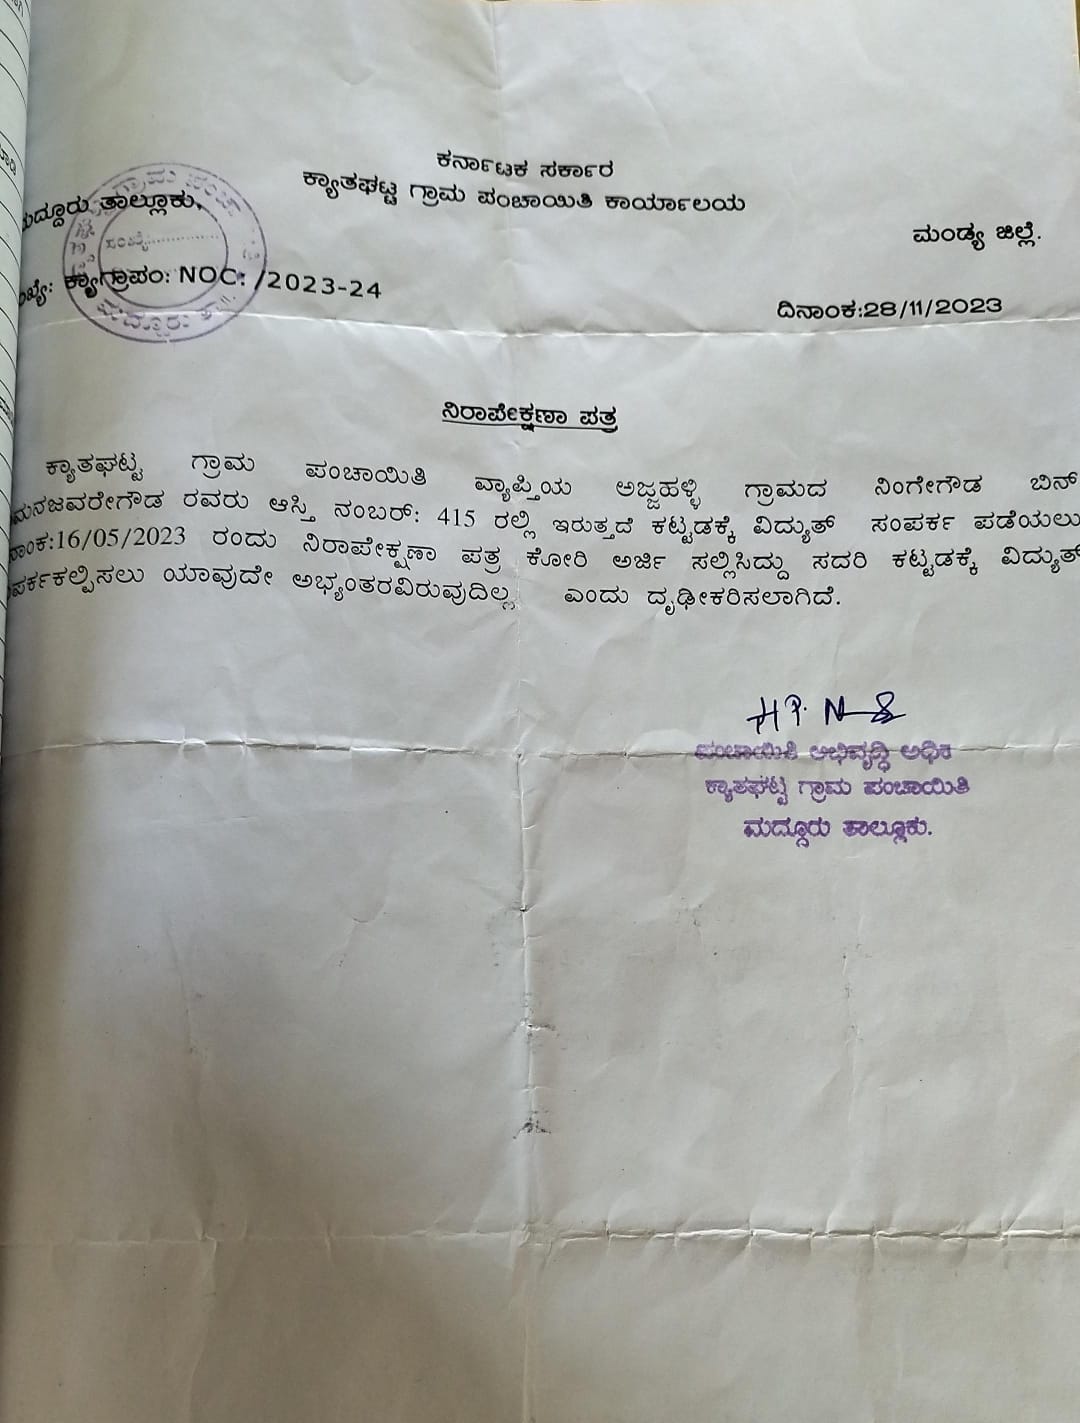 ಕರ್ನಾಟಕ ಸರ್ಕಾರ
ಕ್ಯಾತಘಟ್ಟ ಗ್ರಾಮ ಪಂಚಾಯಿತಿ ಕಾರ್ಯಾಲಯ
ಮದ್ದೂರು ತಾಲ್ಲೂಕು,
ಮಂಡ್ಯ ಜಿಲ್ಲೆ.
ಗ್ರಾಮ ಪಂಚಾ
ಸಂಖ್ಯೆ:
ಮದ್ದೂರು ತಾ||
ಖ್ಯೆ: ಕ್ಯಾಗ್ರಾಪಂ: NOC: /2023-24
ದಿನಾಂಕ:28/11/2023
ನಿರಾಪೇಕ್ಷಣಾ ಪತ್ರ
ಕ್ಯಾತಘಟ್ಟ ಗ್ರಾಮ ಪಂಚಾಯಿತಿ ವ್ಯಾಪ್ತಿಯ ಅಜ್ಜಹಳ್ಳಿ ಗ್ರಾಮದ ನಿಂಗೇಗೌಡ ಬಿನ್
ಮನಜವರೇಗೌಡ ರವರು ಆಸ್ತಿ ನಂಬರ್: 415 ರಲ್ಲಿ ಇರುತ್ತದೆ ಕಟ್ಟಡಕ್ಕೆ ವಿದ್ಯುತ್ ಸಂಪರ್ಕ ಪಡೆಯಲು
ನಾಂಕ:16/05/2023 ರಂದು ನಿರಾಪೇಕ್ಷಣಾ ಪತ್ರ ಕೋರಿ ಅರ್ಜಿ ಸಲ್ಲಿಸಿದ್ದು ಸದರಿ ಕಟ್ಟಡಕ್ಕೆ ವಿದ್ಯುತ್
ಪರ್ಕಕಲ್ಪಿಸಲು ಯಾವುದೇ ಅಭ್ಯಂತರವಿರುವುದಿಲ್ಲ ಎಂದು ದೃಢೀಕರಿಸಲಾಗಿದೆ.
ಪಂಚಾಯಿತಿ ಅಭಿವೃದ್ಧಿ ಅಧಿಕ
ಕ್ಯಾತಘಟ್ಟ ಗ್ರಾಮ ಪಂಚಾಯಿತಿ
ಮದ್ದೂರು ತಾಲ್ಲೂಕು.